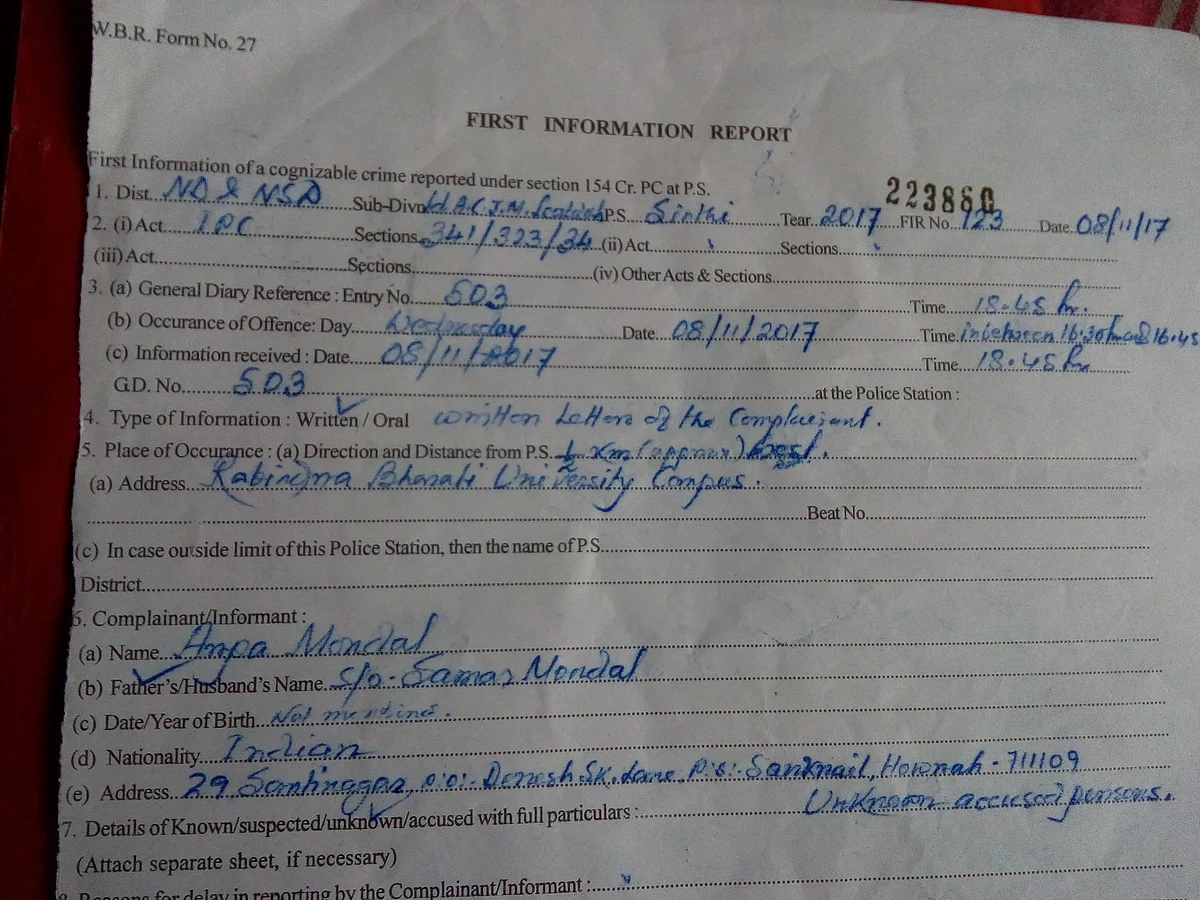 W.B.R. Form No. 27
FIRST INFORMATION REPORT
First Information of a cognizable crime reported under section 154 Cr. PC at P.S.
223860
1. Dist. ND & NSD Sub-Divn. A.C.J.M. P.S. Sinthi Tear. 2017 FIR No. 123 Date. 08/11/17
2. (i) Act. IPC Sections. 341/323/34 (ii) Act. Sections.
(iii) Act. Sections. (iv) Other Acts & Sections.
3. (a) General Diary Reference : Entry No. 503 Time. 18.45 hr.
(b) Occurance of Offence: Day. Wednesday Date. 08/11/2017 Time. inbetween 16:30 hr and 16.45
(c) Information received : Date. 08/11/2017 Time. 18.45 hr
G.D. No. 503 at the Police Station :
4. Type of Information : Written / Oral written Letters of the Complainant.
5. Place of Occurance : (a) Direction and Distance from P.S. 1/2 Km (approx) West.
(a) Address. Rabindra Bharati University Campus.
Beat No.
(c) In case outside limit of this Police Station, then the name of P.S.
District.
6. Complainant/Informant :
(a) Name. Anpa Mondal
(b) Father's/Husband's Name. S/o- Samar Mondal
(c) Date/Year of Birth. Not mentine.
(d) Nationality. Indian
(e) Address. 29 P.O:- Danesh SK. Lane P.S:- Sankrail, Howrah - 711109
7. Details of Known/suspected/unknown/accused with full particulars : Unknown accused persons.
(Attach separate sheet, if necessary)
8. Reasons for delay in reporting by the Complainant/Informant :